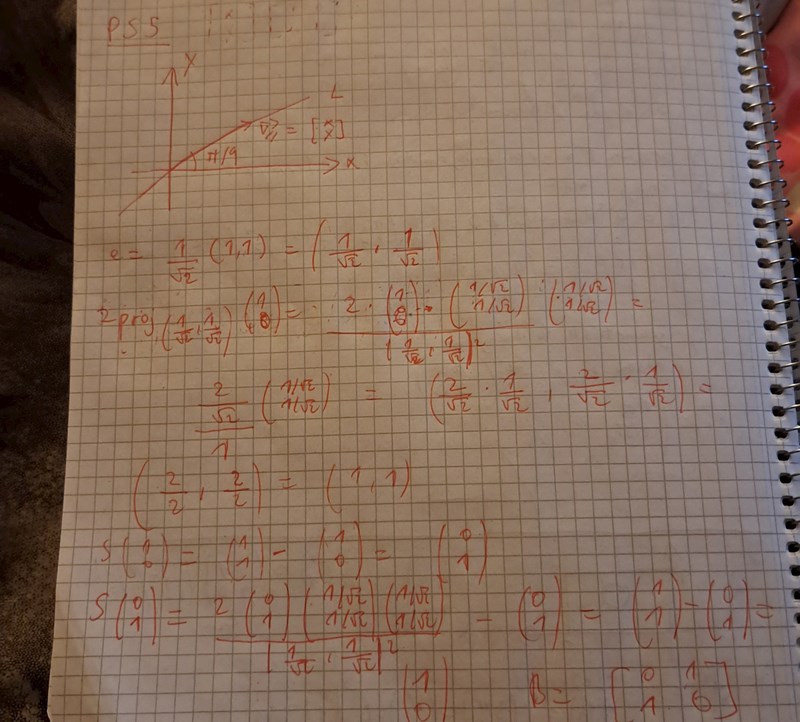 PSS
y
L
v = [x y]
π/4
x
e = 1/√2 (1,1) = (1/√2, 1/√2)
2 proj (1/√2, 1/√2) (1 0) = 2 · (1 0) · (1/√2 1/√2) / |1/√2, 1/√2|² · (1/√2 1/√2) =
2/√2 / 1 (1/√2 1/√2) = (2/√2 · 1/√2, 2/√2 · 1/√2) =
(2/2, 2/2) = (1, 1)
S(1 0) = (1 1) - (1 0) = (0 1)
S(0 1) = 2 (0 1) (1/√2 1/√2) (1/√2 1/√2) / |1/√2, 1/√2|² - (0 1) = (1 1) - (0 1) =
(1 0) B = [0 1 1 0]